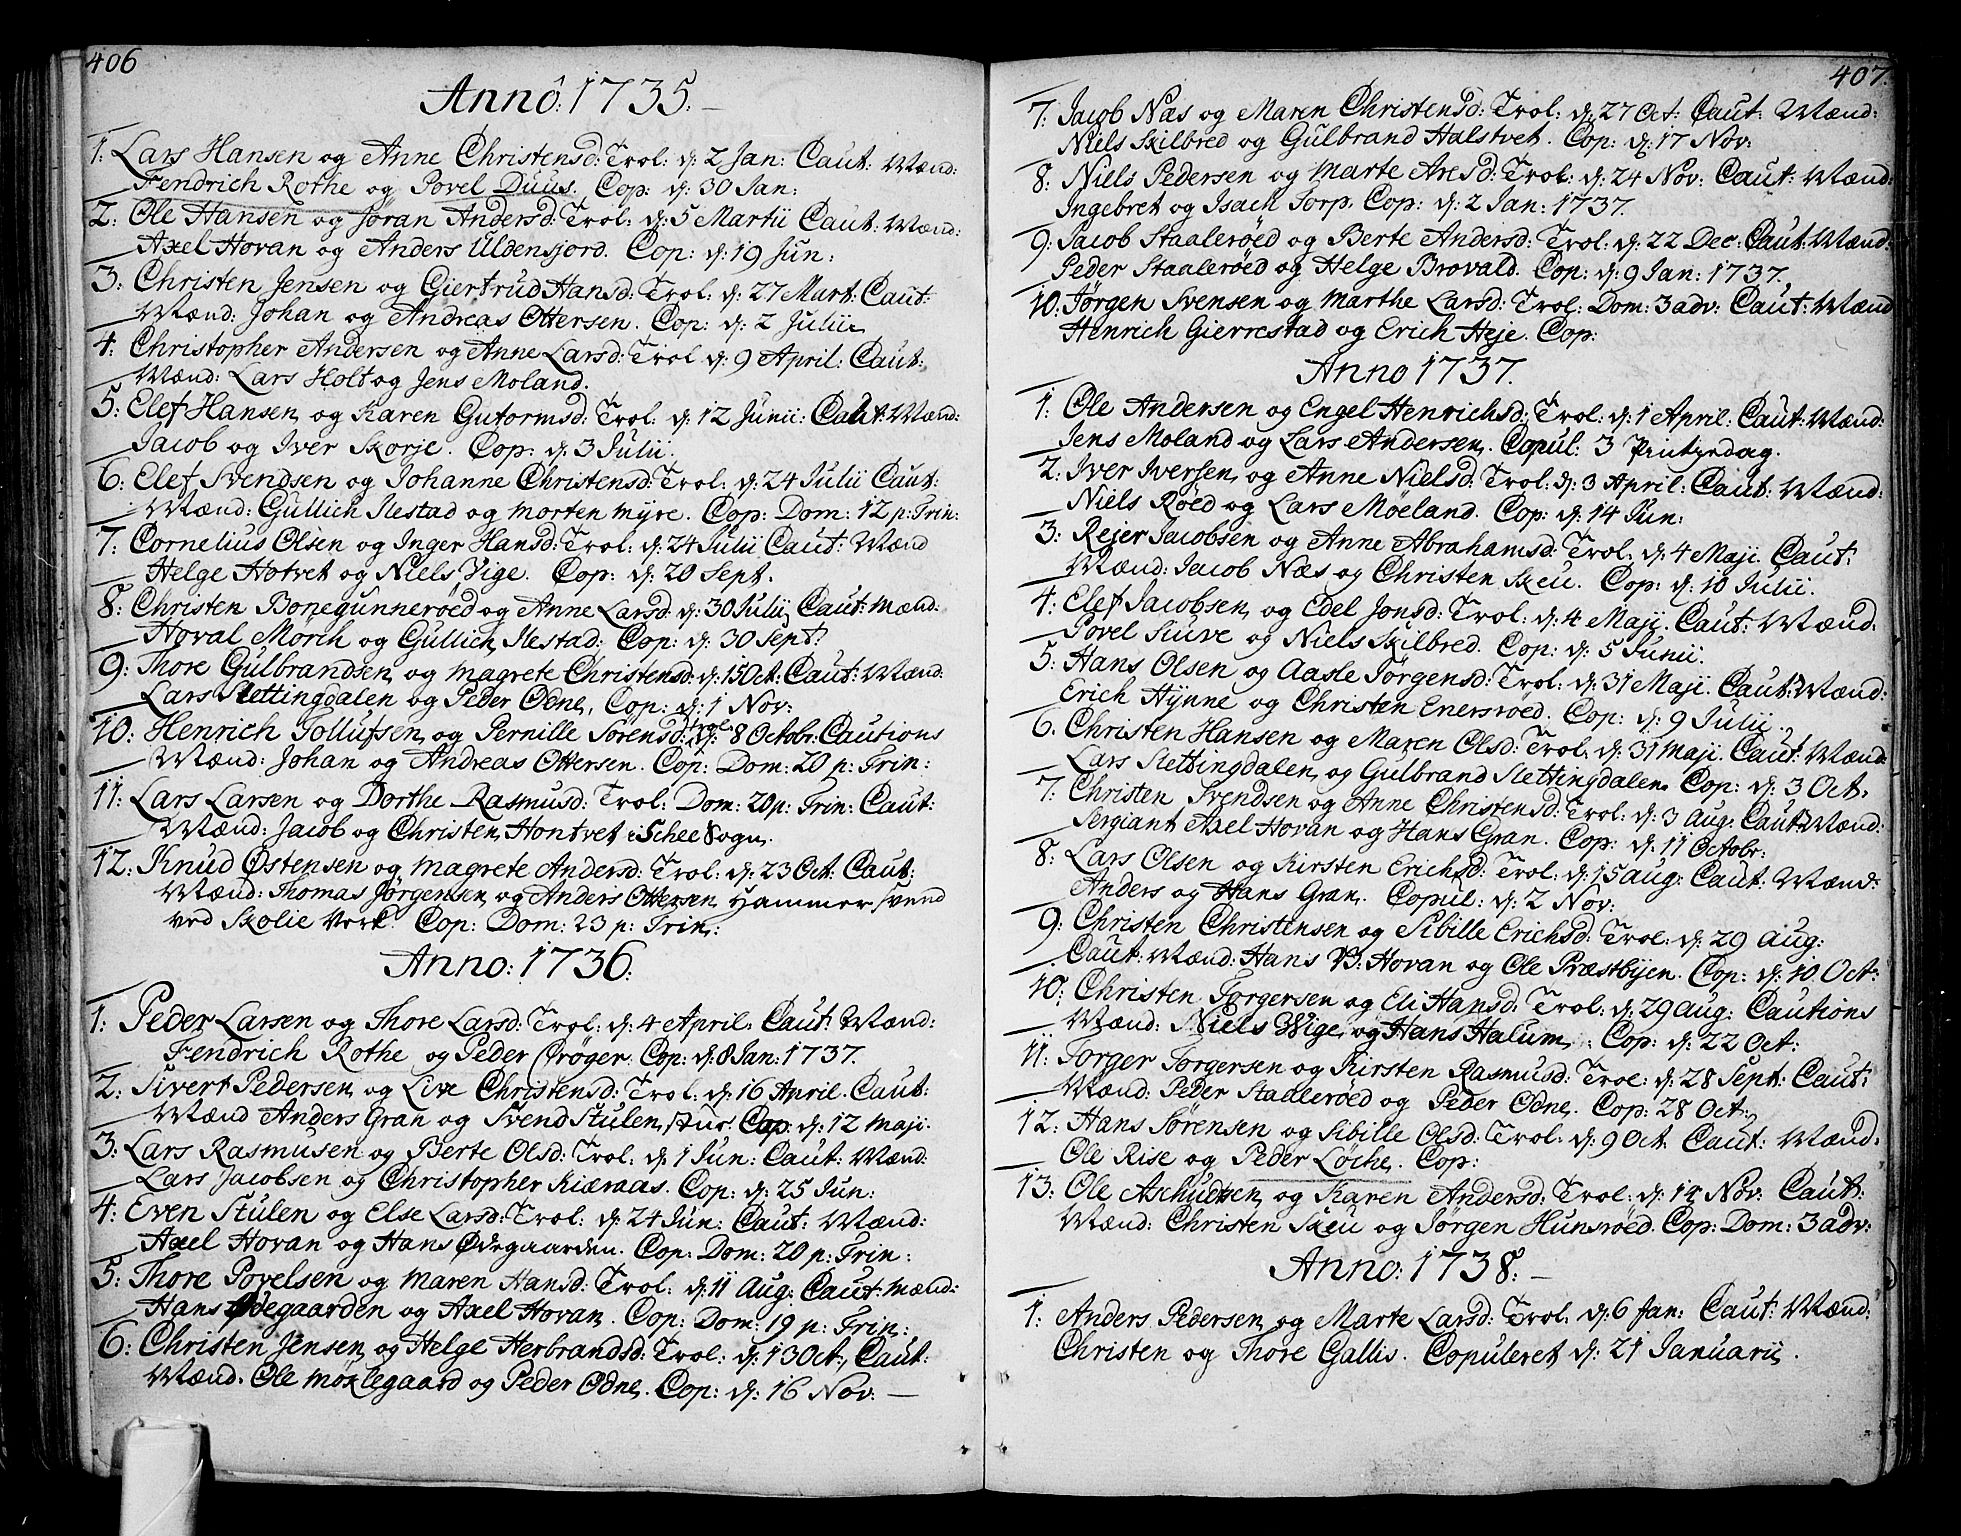 406
Anno: 1735.
1: Lars Hansen og Anne Christensd: Trol: d: 2 Jan: Caut: Mænd:
Fendrich Rothe og Povel Duus. Cop: d: 30 Jan:
2: Ole Hansen og Jøran Andersd: Trol: d: 5 Martii Caut: Mænd:
Axel Hovan og Anders Uldensjord. Cop: d: 19 Jun:
3: Christen Jensen og Giertrud Hansd: Trol: d: 27 Mart: Caut:
Mænd: Johan og Andreas Ottersen. Cop: d: 2 Julii
4: Christopher Andersen og Anne Larsd: Trol d: 9 April: Caut:
Mænd: Lars Holt og Jens Moland.
5: Elef Hansen og Karen Gutormsd: Trol: d: 12 Junii: Caut: Mænd:
Jacob og Iver Skorje. Cop: d: 3 Julii.
6: Elef Svendsen og Johanne Christensd: Trol: d: 24 Julii Caut:
Mænd: Gullich Ilestad og Morten Myre. Cop: Dom: 12 p: Trin:
7: Cornelius Olsen og Inger Hansd: Trol: d: 24 Julii Caut: Mænd
Helge Hotvet og Niels Vige. Cop: d: 20 Sept.
8: Christen Bonegunnerøed og Anne Larsd: d: 30 Julii Caut: Mænd:
Hoval Mörch og Gullich Ilestad: Cop: d: 30 Sept:
9: Thore Gulbrandsen og Magrete Christensd: d: 15 Oct: Caut: Mænd:
Lars Slettingdalen og Peder Odne. Cop: d: 1 Nov:
10: Henrich Tollufsen og Pernille Sørensd: Trol: d: 8 Octobr: Cautions
Mænd: Johan og Andreas Ottersen. Cop: Dom: 20 p: Trin:
11: Lars Larsen og Dorthe Rasmusd: Trol: Dom: 20 p: Trin: Caut:
Mænd: Jacob og Christen Hontvet i Schee Sogn.
12: Knud Østensen og Magrete Andersd: Trol: d: 23 Oct: Caut:
Mænd: Thomas Jørgensen og Anders Ottersen Hammersvend
ved Skolie Verk. Cop: Dom: 23 p: Trin:
Anno: 1736.
1: Peder Larsen og Thore Larsd: Trol: d: 4 April: Caut: Mænd:
Fendrich Rothe og Peder Crøger. Cop: d: 8 Jan: 1737.
2: Sivert Pedersen og Live Christensd: Trol: d: 16 April. Caut:
Mænd Anders Gran og Svend Stulen, Cop: d: 12 Maji.
3: Lars Rasmusen og Berte Olsd: Trol: d: 1 Jun: Caut: Mænd:
Lars Jacobsen og Christopher Kiæraas. Cop: d: 25 Jun:
4: Even Stulen og Else Larsd: Trol: d: 24 Jun: Caut: Mænd:
Axel Hovan og Hans Ødegaarden. Cop: Dom: 20 p: Trin:
5: Thore Povelsen og Maren Hansd: Trol: d: 11 Aug: Caut: Mænd:
Hans Ødegaarden og Axel Hovan. Cop: Dom: 19 p: Trin:
6: Christen Jensen og Helge Herbrandsd: Trol: d: 13 Oct: Caut:
Mænd. Ole Möxlegaard og Peder Odne. Cop: d: 16 Nov:
407.
7: Jacob Næs og Maren Christensd: Trol: d: 27 Oct: Caut: Mænd:
Niels Skilbred og Gulbrand Halstvet. Cop: d: 17 Nov:
8: Niels Pedersen og Marte Aresd: Trol: d: 24 Nov: Caut: Mænd:
Ingebret og Isach Torp. Cop: d: 2 Jan: 1737.
9: Jacob Staalerøed og Berte Andersd: Trol: d: 22 Dec: Caut: Mænd:
Peder Staalerøed og Helge Brovald. Cop: d: 9 Jan: 1737.
10: Jørgen Svensen og Marthe Larsd: Trol: Dom: 3 adv: Caut: Mænd
Henrich Gierrestad og Erich Heje. Cop:
Anno 1737.
1: Ole Andersen og Engel Henrichsd: Trol: d: 1 April: Caut: Mænd:
Jens Moland og Lars Andersen. Copul: 3 Pintzedag.
2: Iver Iversen og Anne Nielsd: Trol: d: 3 April: Caut: Mænd:
Niels Røed og Lars Møeland. Cop: d: 14 Jun:
3: Rejer Jacobsen og Anne Abrahamsd: Trol: d: 4 Maji. Caut:
Mænd: Jacob Næs og Christen Skeu. Cop: d: 10 Julii.
4: Elef Jacobsen og Edel Jonsd: Trol: d: 4 Maji. Caut: Mænd:
Povel Suuve og Niels Skilbred. Cop: d: 5 Junii.
5: Hans Olsen og Aasle Jørgensd: Trol: d: 31 Maji. Caut: Mænd:
Erich Hynne og Christen Enersrøed. Cop: d: 9 Julii.
6. Christen Hansen og Maren Olsd: Trol: d: 31 Maji. Caut: Mænd:
Lars Slettingdalen og Gulbrand Slettingdalen. Cop: d: 3 Oct.
7: Christen Svendsen og Anne Christensd: Trol: d: 3 Aug: Caut: Mænd:
Sergiant Axel Hovan og Hans Gran. Cop: d: 11 Octobr:
8: Lars Olsen og Kirsten Erichsd: Trol: d: 15 Aug: Caut: Mænd:
Anders og Hans Gran. Copul: d: 2 Nov:
9: Christen Christensen og Sibille Erichsd: Trol: d: 29 Aug:
Caut: Mænd: Hans B: Hovan og Ole Præstbyen. Cop: d: 10 Oct:
10: Christen Torgersen og Eli Hansd: Trol: d: 29 Aug: Cautions
Mænd: Niels Wige og Hans Halum. Cop: d: 22 Oct:
11: Torger Torgersen og Kirsten Rasmusd: Trol: d: 28 Sept: Caut:
Mænd: Peder Staalerøed og Peder Odne. Cop: 28 Oct:
12: Hans Sørensen og Sibille Olsd: Trol: d: 9 Oct. Caut: Mænd:
Ole Rise og Peder Løche. Cop:
13: Ole Aschuetsen og Karen Andersd: Trol: d: 14 Nov: Caut:
Mænd: Christen Skeu og Jørgen Hunsrøed. Cop: Dom: 3 adv:
Anno: 1738.
1: Anders Pedersen og Marte Larsd: Trol: d: 6 Jan: Caut: Mænd:
Christen og Thore Gallis. Copuleret d: 21 Januarii.